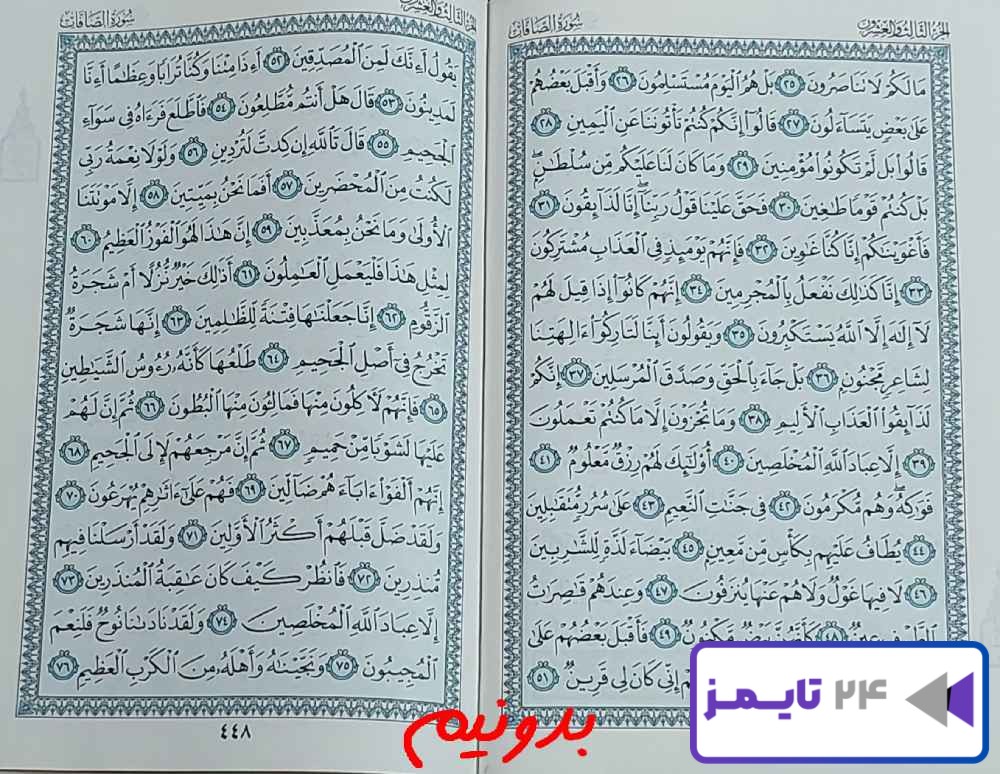 الجزء الثالث والعشرون
سورة الصافات
مَا لَكُمْ لَا تَنَاصَرُونَ ٢٥ بَلْ هُمُ الْيَوْمَ مُسْتَسْلِمُونَ ٢٦ وَأَقْبَلَ بَعْضُهُمْ
عَلَىٰ بَعْضٍ يَتَسَاءَلُونَ ٢٧ قَالُوا إِنَّكُمْ كُنْتُمْ تَأْتُونَنَا عَنِ الْيَمِينِ ٢٨
قَالُوا بَلْ لَمْ تَكُونُوا مُؤْمِنِينَ ٢٩ وَمَا كَانَ لَنَا عَلَيْكُمْ مِنْ سُلْطَانٍ ۖ
بَلْ كُنْتُمْ قَوْمًا طَاغِينَ ٣٠ فَحَقَّ عَلَيْنَا قَوْلُ رَبِّنَا ۖ إِنَّا لَذَائِقُونَ ٣١
فَأَغْوَيْنَاكُمْ إِنَّا كُنَّا غَاوِينَ ٣٢ فَإِنَّهُمْ يَوْمَئِذٍ فِي الْعَذَابِ مُشْتَرِكُونَ
٣٣ إِنَّا كَذَٰلِكَ نَفْعَلُ بِالْمُجْرِمِينَ ٣٤ إِنَّهُمْ كَانُوا إِذَا قِيلَ لَهُمْ
لَا إِلَٰهَ إِلَّا اللَّهُ يَسْتَكْبِرُونَ ٣٥ وَيَقُولُونَ أَئِنَّا لَتَارِكُو آلِهَتِنَا
لِشَاعِرٍ مَجْنُونٍ ٣٦ بَلْ جَاءَ بِالْحَقِّ وَصَدَّقَ الْمُرْسَلِينَ ٣٧ إِنَّكُمْ
لَذَائِقُو الْعَذَابِ الْأَلِيمِ ٣٨ وَمَا تُجْزَوْنَ إِلَّا مَا كُنْتُمْ تَعْمَلُونَ
٣٩ إِلَّا عِبَادَ اللَّهِ الْمُخْلَصِينَ ٤٠ أُولَٰئِكَ لَهُمْ رِزْقٌ مَعْلُومٌ ٤١
فَوَاكِهُ ۖ وَهُمْ مُكْرَمُونَ ٤٢ فِي جَنَّاتِ النَّعِيمِ ٤٣ عَلَىٰ سُرُرٍ مُتَقَابِلِينَ
٤٤ يُطَافُ عَلَيْهِمْ بِكَأْسٍ مِنْ مَعِينٍ ٤٥ بَيْضَاءَ لَذَّةٍ لِلشَّارِبِينَ
٤٦ لَا فِيهَا غَوْلٌ وَلَا هُمْ عَنْهَا يُنْزَفُونَ ٤٧ وَعِنْدَهُمْ قَاصِرَاتُ
الطَّرْفِ عِينٌ ٤٨ كَأَنَّهُنَّ بَيْضٌ مَكْنُونٌ ٤٩ فَأَقْبَلَ بَعْضُهُمْ عَلَىٰ
إِنِّي كَانَ لِي قَرِينٌ ٥١
الجزء الثالث والعشرون
سورة الصافات
يَقُولُ أَإِنَّكَ لَمِنَ الْمُصَدِّقِينَ ٥٢ أَإِذَا مِتْنَا وَكُنَّا تُرَابًا وَعِظَامًا أَإِنَّا
لَمَدِينُونَ ٥٣ قَالَ هَلْ أَنْتُمْ مُطَّلِعُونَ ٥٤ فَاطَّلَعَ فَرَآهُ فِي سَوَاءِ
الْجَحِيمِ ٥٥ قَالَ تَاللَّهِ إِنْ كِدْتَ لَتُرْدِينِ ٥٦ وَلَوْلَا نِعْمَةُ رَبِّي
لَكُنْتُ مِنَ الْمُحْضَرِينَ ٥٧ أَفَمَا نَحْنُ بِمَيِّتِينَ ٥٨ إِلَّا مَوْتَتَنَا
الْأُولَىٰ وَمَا نَحْنُ بِمُعَذَّبِينَ ٥٩ إِنَّ هَٰذَا لَهُوَ الْفَوْزُ الْعَظِيمُ ٦٠
لِمِثْلِ هَٰذَا فَلْيَعْمَلِ الْعَامِلُونَ ٦١ أَذَٰلِكَ خَيْرٌ نُزُلًا أَمْ شَجَرَةُ
الزَّقُّومِ ٦٢ إِنَّا جَعَلْنَاهَا فِتْنَةً لِلظَّالِمِينَ ٦٣ إِنَّهَا شَجَرَةٌ
تَخْرُجُ فِي أَصْلِ الْجَحِيمِ ٦٤ طَلْعُهَا كَأَنَّهُ رُءُوسُ الشَّيَاطِينِ
٦٥ فَإِنَّهُمْ لَآكِلُونَ مِنْهَا فَمَالِئُونَ مِنْهَا الْبُطُونَ ٦٦ ثُمَّ إِنَّ لَهُمْ
عَلَيْهَا لَشَوْبًا مِنْ حَمِيمٍ ٦٧ ثُمَّ إِنَّ مَرْجِعَهُمْ لَإِلَى الْجَحِيمِ ٦٨
إِنَّهُمْ أَلْفَوْا آبَاءَهُمْ ضَالِّينَ ٦٩ فَهُمْ عَلَىٰ آثَارِهِمْ يُهْرَعُونَ ٧٠
وَلَقَدْ ضَلَّ قَبْلَهُمْ أَكْثَرُ الْأَوَّلِينَ ٧١ وَلَقَدْ أَرْسَلْنَا فِيهِمْ
مُنْذِرِينَ ٧٢ فَانْظُرْ كَيْفَ كَانَ عَاقِبَةُ الْمُنْذَرِينَ ٧٣
إِلَّا عِبَادَ اللَّهِ الْمُخْلَصِينَ ٧٤ وَلَقَدْ نَادَانَا نُوحٌ فَلَنِعْمَ
الْمُجِيبُونَ ٧٥ وَنَجَّيْنَاهُ وَأَهْلَهُ مِنَ الْكَرْبِ الْعَظِيمِ ٧٦
٤٤٨
بدونیم
۲۴ تایمز